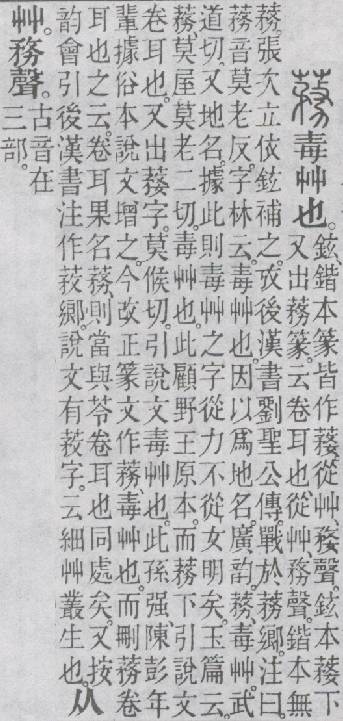 蓩毒艸也。鉉、鍇本篆皆作。從艸、婺聲。鉉本下
又出蓩篆。云卷耳也。從艸、務聲。鍇本無
蓩。張次立依鉉補之。攷後漢書劉聖公傳。戰於蓩鄉。注曰。
蓩音莫老反。字林云。毒艸也。因以爲地名。廣韵。蓩、毒艸。武
道切。又地名。據此則毒艸之字從力不從女明矣。玉篇云。
蓩、莫屋莫老二切。毒艸也。此顧野王原本。而蓩下引說文
卷耳也。又出字。莫候切。引說文毒艸也。此孫强、陳彭年
輩據俗本說文增之。今改正篆文作蓩、毒艸也。而刪蓩卷
耳也之云。卷耳果名蓩、則當與苓卷耳也同處矣。又按
韵會引後漢書注作鄉。說文有字。云細艸叢生也。从
艸。務聲。古音在
三部。